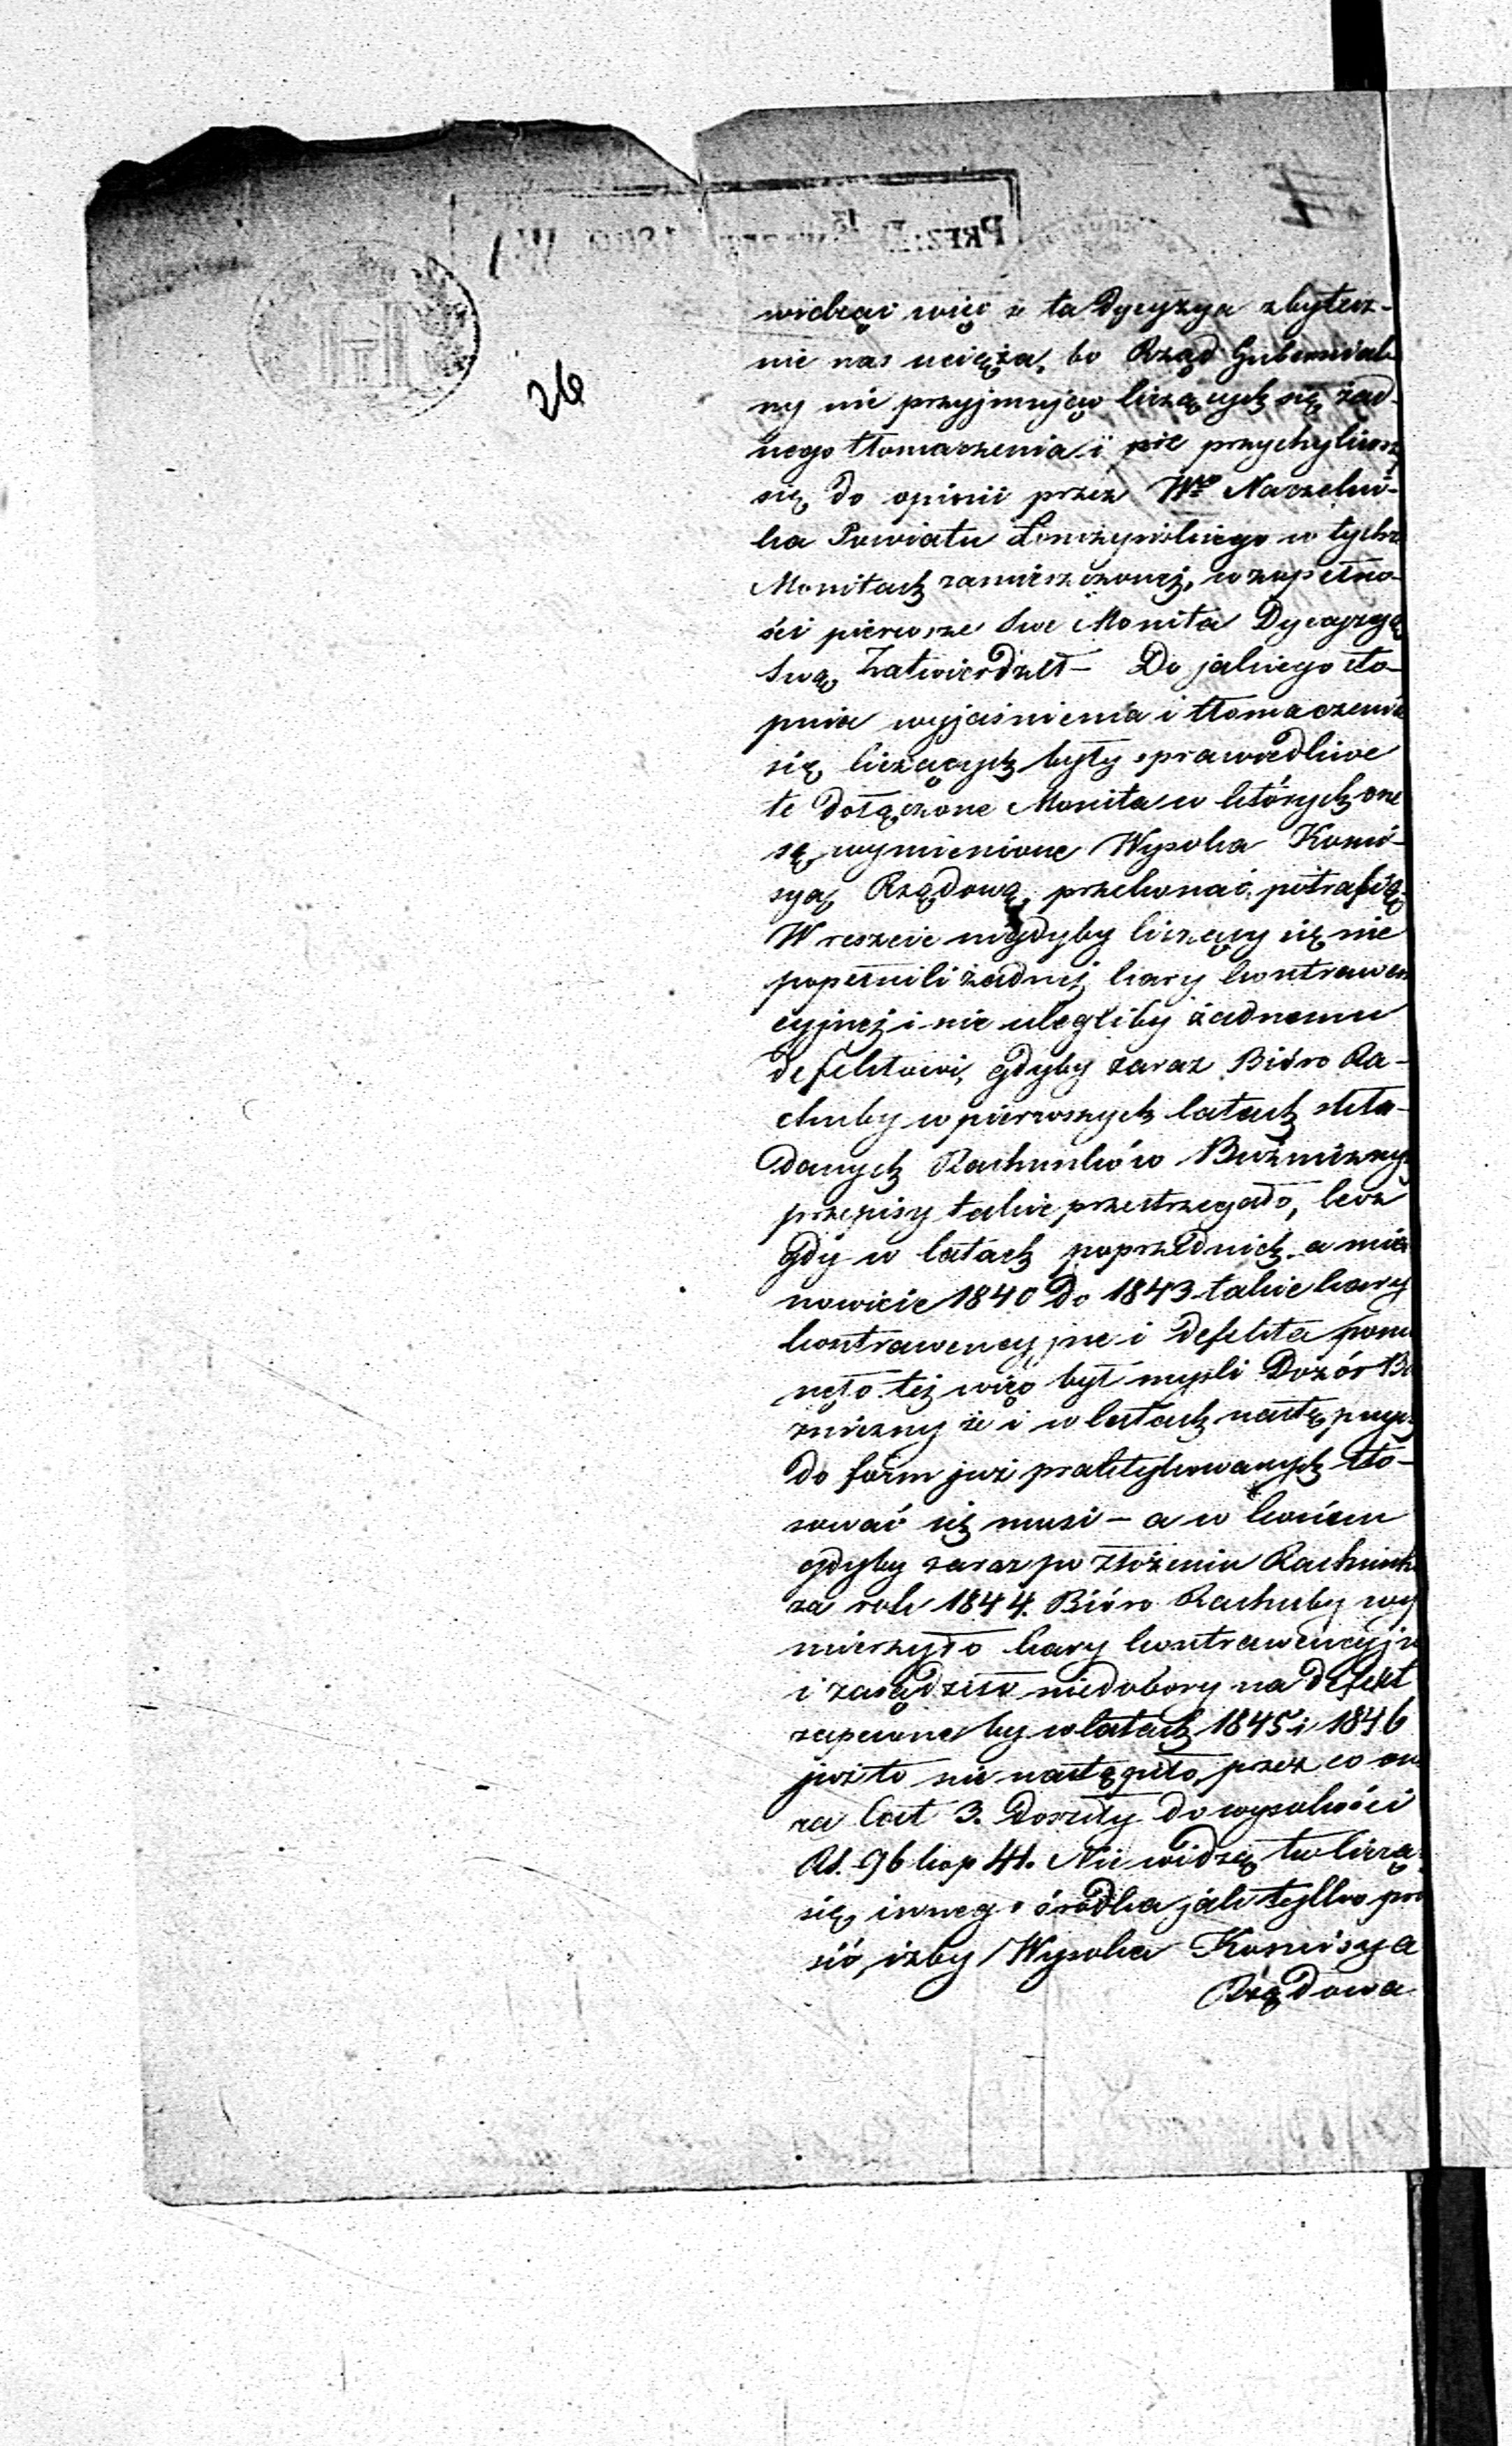 26
widząc więc że ta Decyzya zbytecz-
nie nas uciąża, bo Rząd Gubernial
ny nie przyjmując liczących się żad-
nego tłomaczenia i nie przychyliwszy
się do opinii przez Wgo Naczelni-
ka Powiatu Łomżyńskiego w tychże
Monitach zamieszczonej, w zupełno-
ści pierwsze swe Monita Decyzyą
swą Zatwierdził – Do jakiego sto-
pnia wyjaśnienia i tłomaczenia
się liczących były sprawiedliwe
te dołączone Monita w których one
są wymienione Wysoka Komi-
syą Rządową, przekonać potrafią.
W reszcie nigdyby liczący się nie
popełnili żadnej kary kontrawen
cyjnej i nie uległiby żadnemu
defektowi, gdyby zaraz Bióro Ra-
chuby w pierwszych latach skła-
danych Rachunków Bużniczny
przepisy takie przestrzegało, lecz
gdy w latach poprzednich a mia
nowicie 1840 do 1843 takie kary
kontrawencyjne i defekta pomi
nęło też więc był mysli Dozór Bu
żniczny że i w latach następnych
do form już praktykowanych sto-
sować się musi – a w końcu
gdyby zaraz po złożeniu Rachunk
za rok 1844. Bióro Rachuby wy
mierzyło kary kontrawencyjn
i zasądziło niedobory na defekt
zapewne by w latach 1845 i 1846
już to nie nastąpiło, przez co one
za lat 3. doszły do wysokości
Rs. 96 kop 41. Nie widzą tu licząc
się innego środka jak tylko pro
sić, iżby Wysoka Komisya
Rządowa